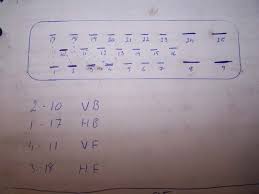 17 18 19 20 21 22 23 24 25
10 11 12 13 14 15 16
1 2 3 4 5 6 7 8 9
2-10 VB
1-17 HB
4-11 VE
3-18 HE